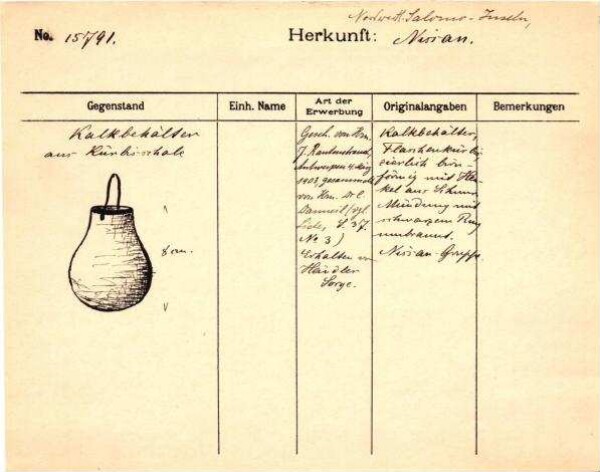 Nordwest-Salomo-Inseln,
No. 15791.
Herkunft: Nissan.
Gegenstand
Einh. Name
Art der Erwerbung
Originalangaben
Bemerkungen
Kalkbehälter
aus Kürbisschale
8 cm.
Gesch. von Hrn.
J. Rautenstrauch,
Antwerpen
1903, gesammelt
von Hrn. Dr. C.
Danneil (vgl.
S. 37
No 3)
Erhalten von
Händler
Sorge.
Kalkbehälter,
Flaschenkürbis
zierlich birn-
förmig mit Hen-
kel aus Schnur
Mündung mit
schwarzem Ring
umbrannt.
Nissan-Gruppe